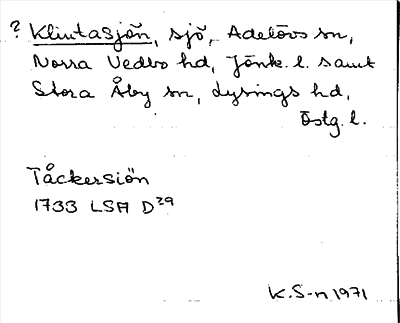 ? Klintasjön, sjö, Adelövs sn,
Norra Vedbo hd, Jönk. l. samt
Stora Åby sn, Lysings hd,
Östg. l.
Tåckersiön
1733 LSA D²⁹
K.S-n 1971